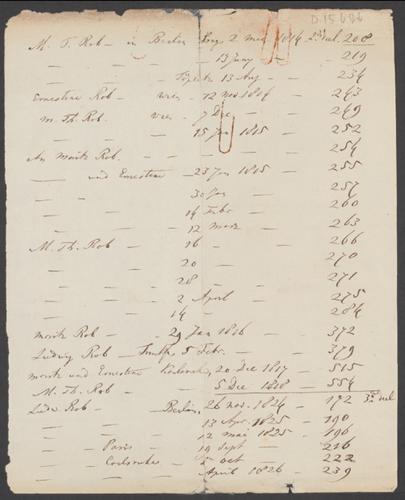 D.15686
M. T. Rob — in Berlin Prag 2 mai 1814 2r vol 208
— — — 13 Juny — 219
— — — Töplitz 13 Aug — 234
Ernestine Rob — Wien — 12 Nov 1814 — 243
M. Th. Rob. Wien — 7 Dec — 249
15 Jan 1815 — 252
— — — — 254
An Moritz Rob. — — — 255
— und Ernestine — 23 Jan 1815 — 257
— — 30 Jan — 260
— — 14 Febr — 263
— — 12 März
M. Th. Rob — 16 — — 266
— — 20 — 270
— — 28 — 271
— — 2 April — 275
— — 14 — 284
Moritz Rob — 29 Jan 1816 — 372
Ludwig Rob — 5 Febr. — 379
Moritz und Ernestine Karlsruhe, 20 Dec 1817 — 515
M. Th. Rob — 5 Dec 1818 — 554
Ludw Rob — Berlin, 26 Nov. 1824 — 172 3r vol
— — 13 Apr. 1825 — 190
— — 12 mai 1825 — 196
— Paris — 19 Sept — 216
— Carlsruhe — oct — 222
— — April 1826 — 239